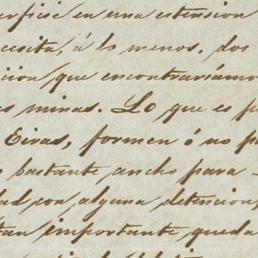 erficie en una estension
ecesita, á lo menos, dos
cion que encontrariamo
es minas. Lo que es p
Eiras, formen ó no p
bastante ancho para
dad con alguna detencion,
tan importante, queda